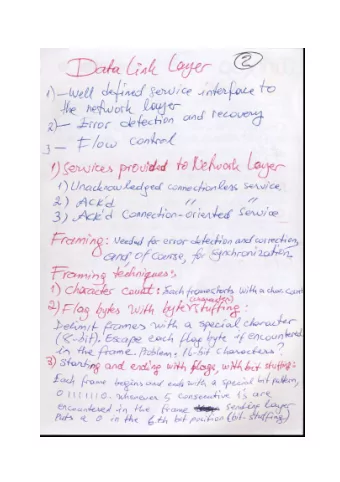 Data Link Layer 2
1) - Well defined service interface to
the network layer
2) - Error detection and recovery
3 - Flow control
1) Services provided to Network Layer
1) Unacknowledged connectionless service
2) Ack'd " "
3) Ack'd Connection-oriented Service
Framing: Needed for error detection and correction,
and, of course, for synchronization
Framing techniques:
1) Character count: Each frame starts with a char. count
2) Flag bytes with byte (character) stuffing:
Delimit frames with a special character
(8-bit). Escape each flag byte if encountered
in the frame. Problem: 16-bit characters?
3) Starting and ending with flags, with bit stuffing:
Each frame begins and ends with a special bit pattern,
01111110. Whenever 5 consecutive 1's are
encountered in the frame sending layer
puts a 0 in the 6th bit position (bit-stuffing)